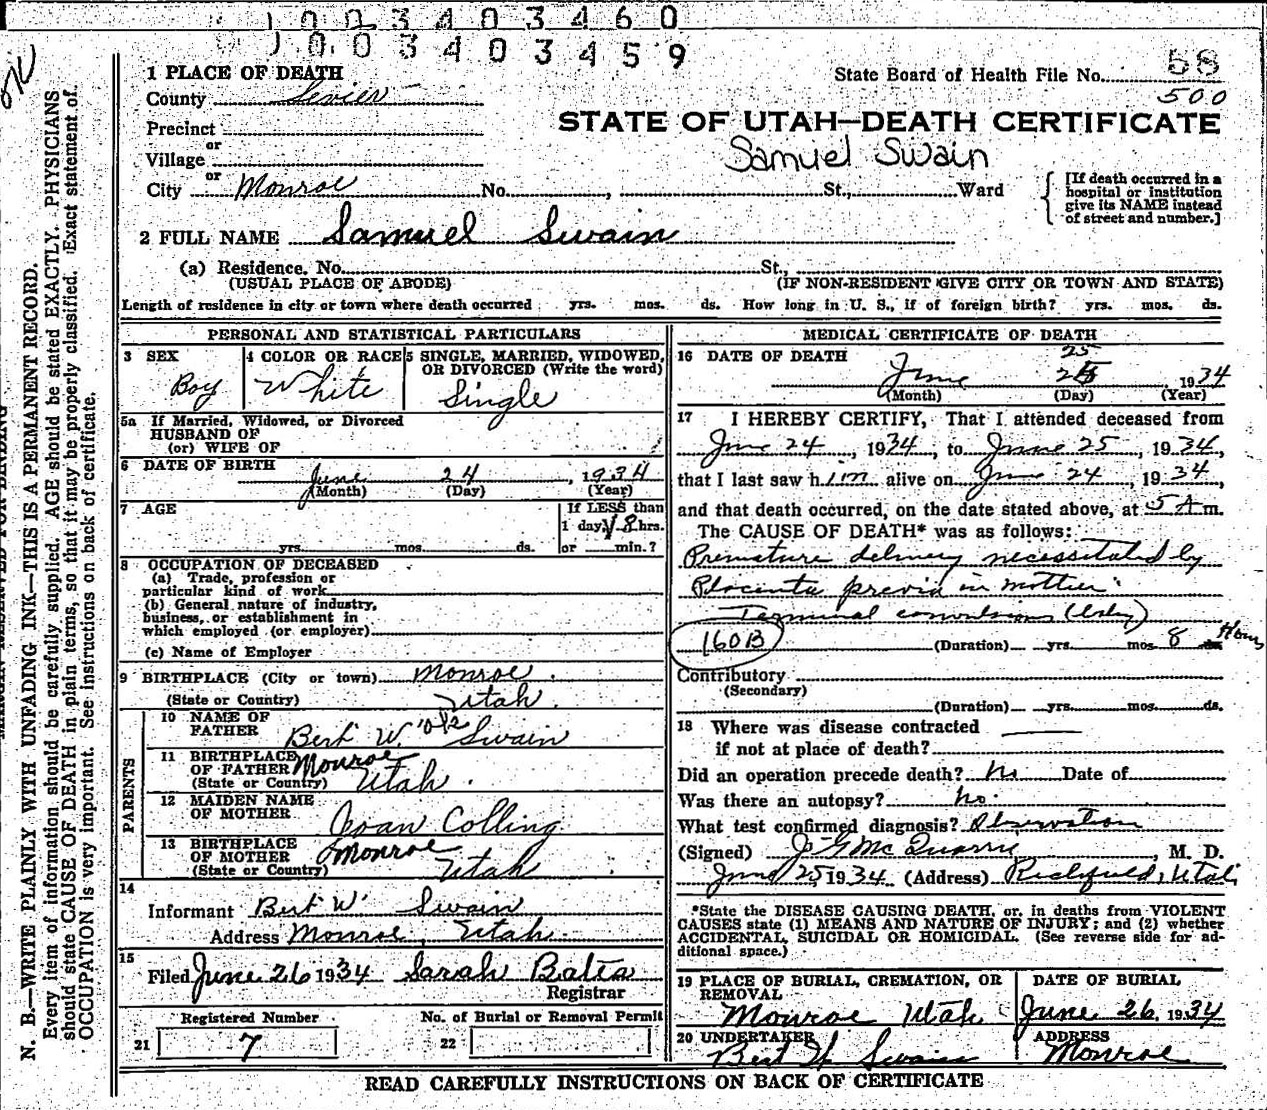 1 0 0 3 4 0 3 4 6 0
1 0 0 3 4 0 3 4 5 9
1 PLACE OF DEATH
State Board of Health File No. 58
County Sevier
500
STATE OF UTAH—DEATH CERTIFICATE
Precinct
or
Village
Samuel Swain
or
City Monroe No. , St., Ward
[If death occurred in a hospital or institution give its NAME instead of street and number.]
2 FULL NAME Samuel Swain
(a) Residence. No. St.,
(USUAL PLACE OF ABODE) (IF NON-RESIDENT GIVE CITY OR TOWN AND STATE)
Length of residence in city or town where death occurred yrs. mos. ds. How long in U. S., if of foreign birth? yrs. mos. ds.
PERSONAL AND STATISTICAL PARTICULARS
3 SEX
Boy
4 COLOR OR RACE
White
5 SINGLE, MARRIED, WIDOWED, OR DIVORCED (Write the word)
Single
5a If Married, Widowed, or Divorced
HUSBAND OF
(or) WIFE OF
6 DATE OF BIRTH
June 24, 1934
(Month) (Day) (Year)
7 AGE
If LESS than
1 day, 8 hrs.
yrs. mos. ds. or min.?
8 OCCUPATION OF DECEASED
(a) Trade, profession or
particular kind of work
(b) General nature of industry,
business, or establishment in
which employed (or employer)
(c) Name of Employer
9 BIRTHPLACE (City or town) Monroe
(State or Country) Utah
PARENTS
10 NAME OF FATHER Bert W. Swain
11 BIRTHPLACE OF FATHER Monroe
(State or Country) Utah
12 MAIDEN NAME OF MOTHER Joan Colling
13 BIRTHPLACE OF MOTHER Monroe
(State or Country) Utah
14
Informant Bert W. Swain
Address Monroe, Utah
15
Filed June 26 1934 Sarah Bates
Registrar
Registered Number
21 7
No. of Burial or Removal Permit
22
MEDICAL CERTIFICATE OF DEATH
16 DATE OF DEATH
25
June , 1934
(Month) (Day) (Year)
17 I HEREBY CERTIFY, That I attended deceased from
June 24, 1934, to June 25, 1934,
that I last saw him alive on June 24, 1934,
and that death occurred, on the date stated above, at 5 A m.
The CAUSE OF DEATH* was as follows:
Premature delivery necessitated by
Placenta previa in mother
Terminal convulsions
160B (Duration) yrs. mos. 8 Hours
Contributory
(Secondary)
(Duration) yrs. mos. ds.
18 Where was disease contracted
if not at place of death?
Did an operation precede death? No Date of
Was there an autopsy? No.
What test confirmed diagnosis? Observation
(Signed) J G McQuarrie, M. D.
June 25 1934 (Address) Richfield, Utah
*State the DISEASE CAUSING DEATH, or, in deaths from VIOLENT
CAUSES state (1) MEANS AND NATURE OF INJURY; and (2) whether
ACCIDENTAL, SUICIDAL OR HOMICIDAL. (See reverse side for additional space.)
19 PLACE OF BURIAL, CREMATION, OR REMOVAL
Monroe Utah
DATE OF BURIAL
June 26, 1934
20 UNDERTAKER
Bert W Swain
ADDRESS
Monroe
READ CAREFULLY INSTRUCTIONS ON BACK OF CERTIFICATE
N. B.—WRITE PLAINLY WITH UNFADING INK—THIS IS A PERMANENT RECORD.
Every item of information should be carefully supplied. AGE should be stated EXACTLY. PHYSICIANS
should state CAUSE OF DEATH in plain terms, so that it may be properly classified. Exact statement of
OCCUPATION is very important. See instructions on back of certificate.